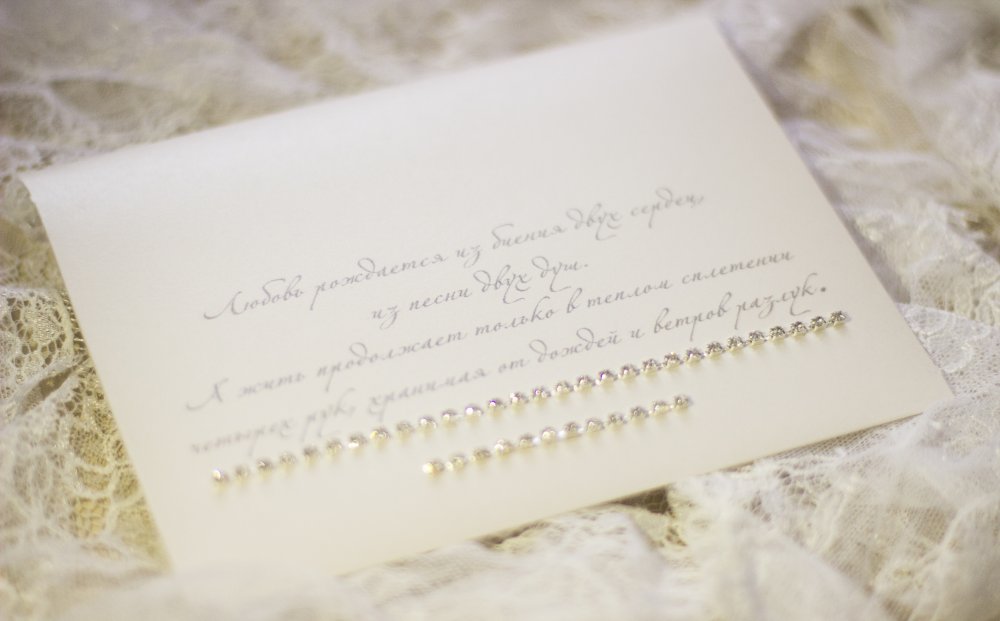 Любовь рождается из биения двух сердец,
из песни двух душ.
А жить продолжает только в теплом сплетении
четырех рук, хранимая от дождей и ветров разлук.